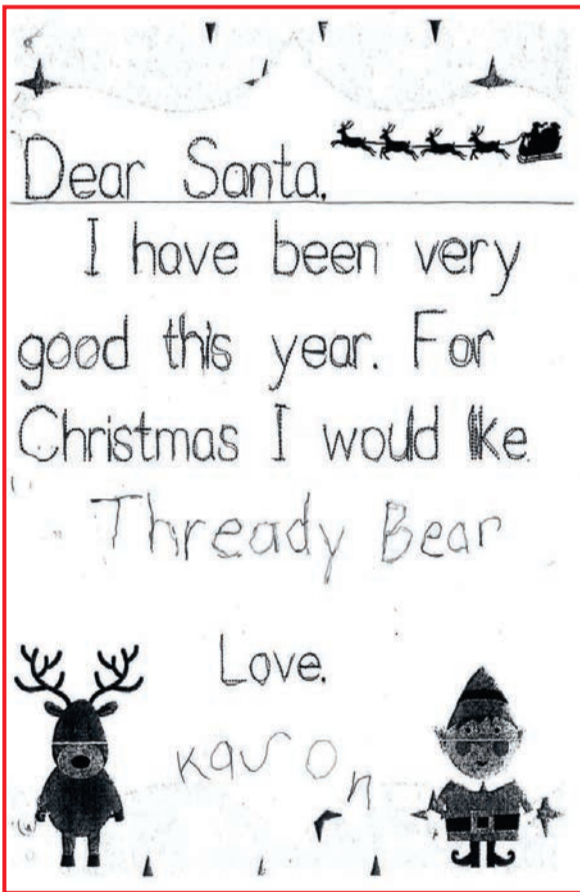 Dear Santa,
I have been very
good this year. For
Christmas I would like
Thready Bear
Love,